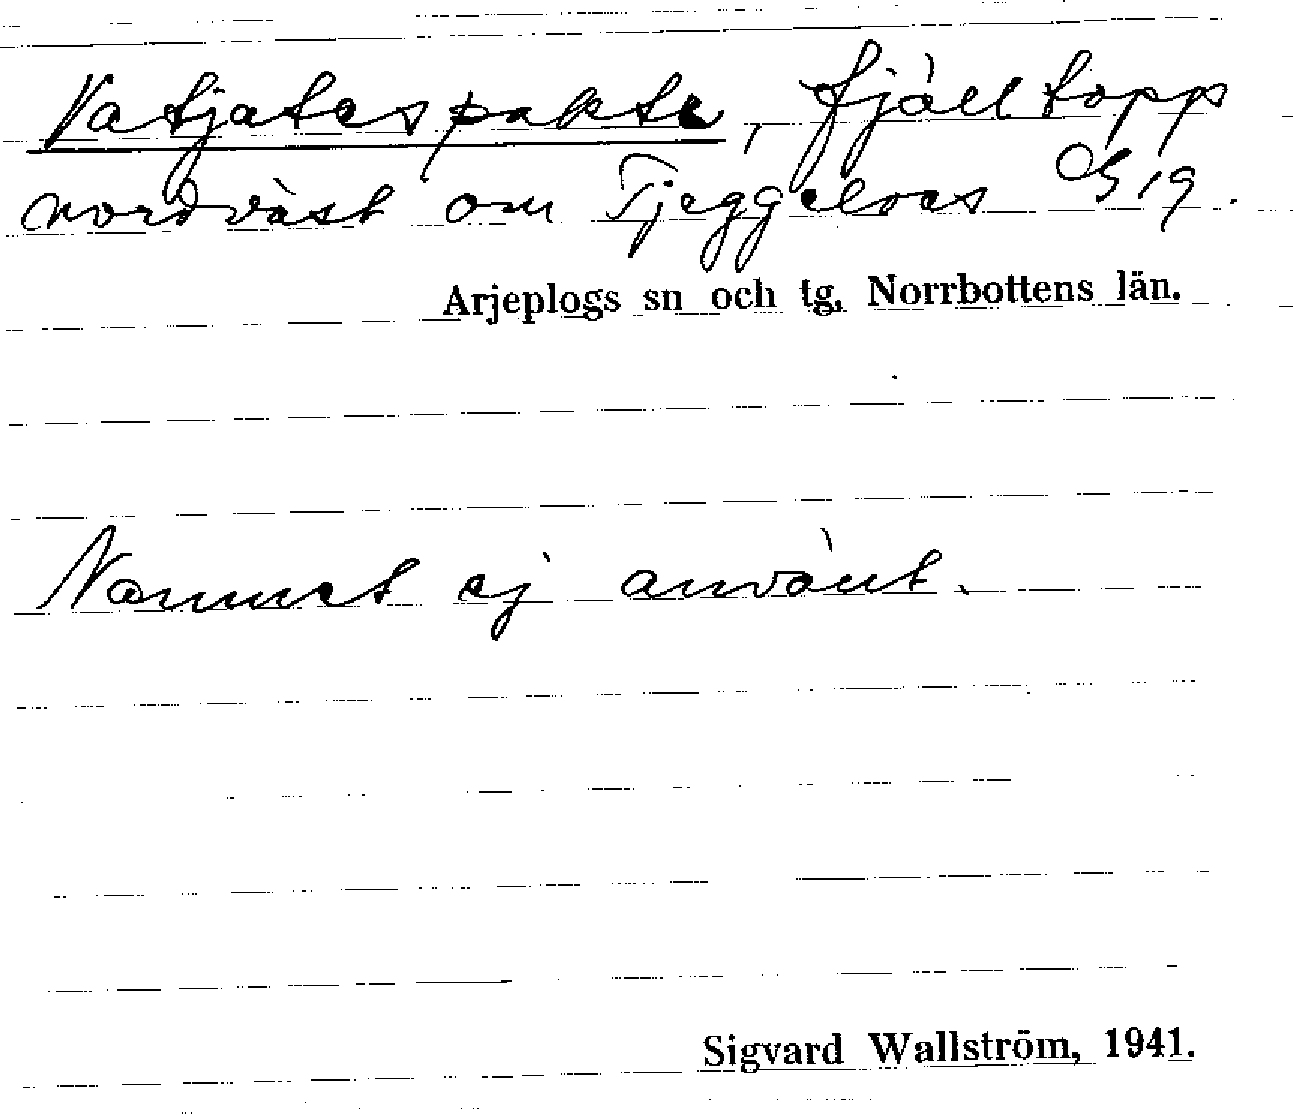 Vatjatespakte, fjälltopp
nordväst om Tjeggelvas G 19.
Arjeplogs sn och tg, Norrbottens län.
Namnet ej använt.
Sigvard Wallström, 1941.